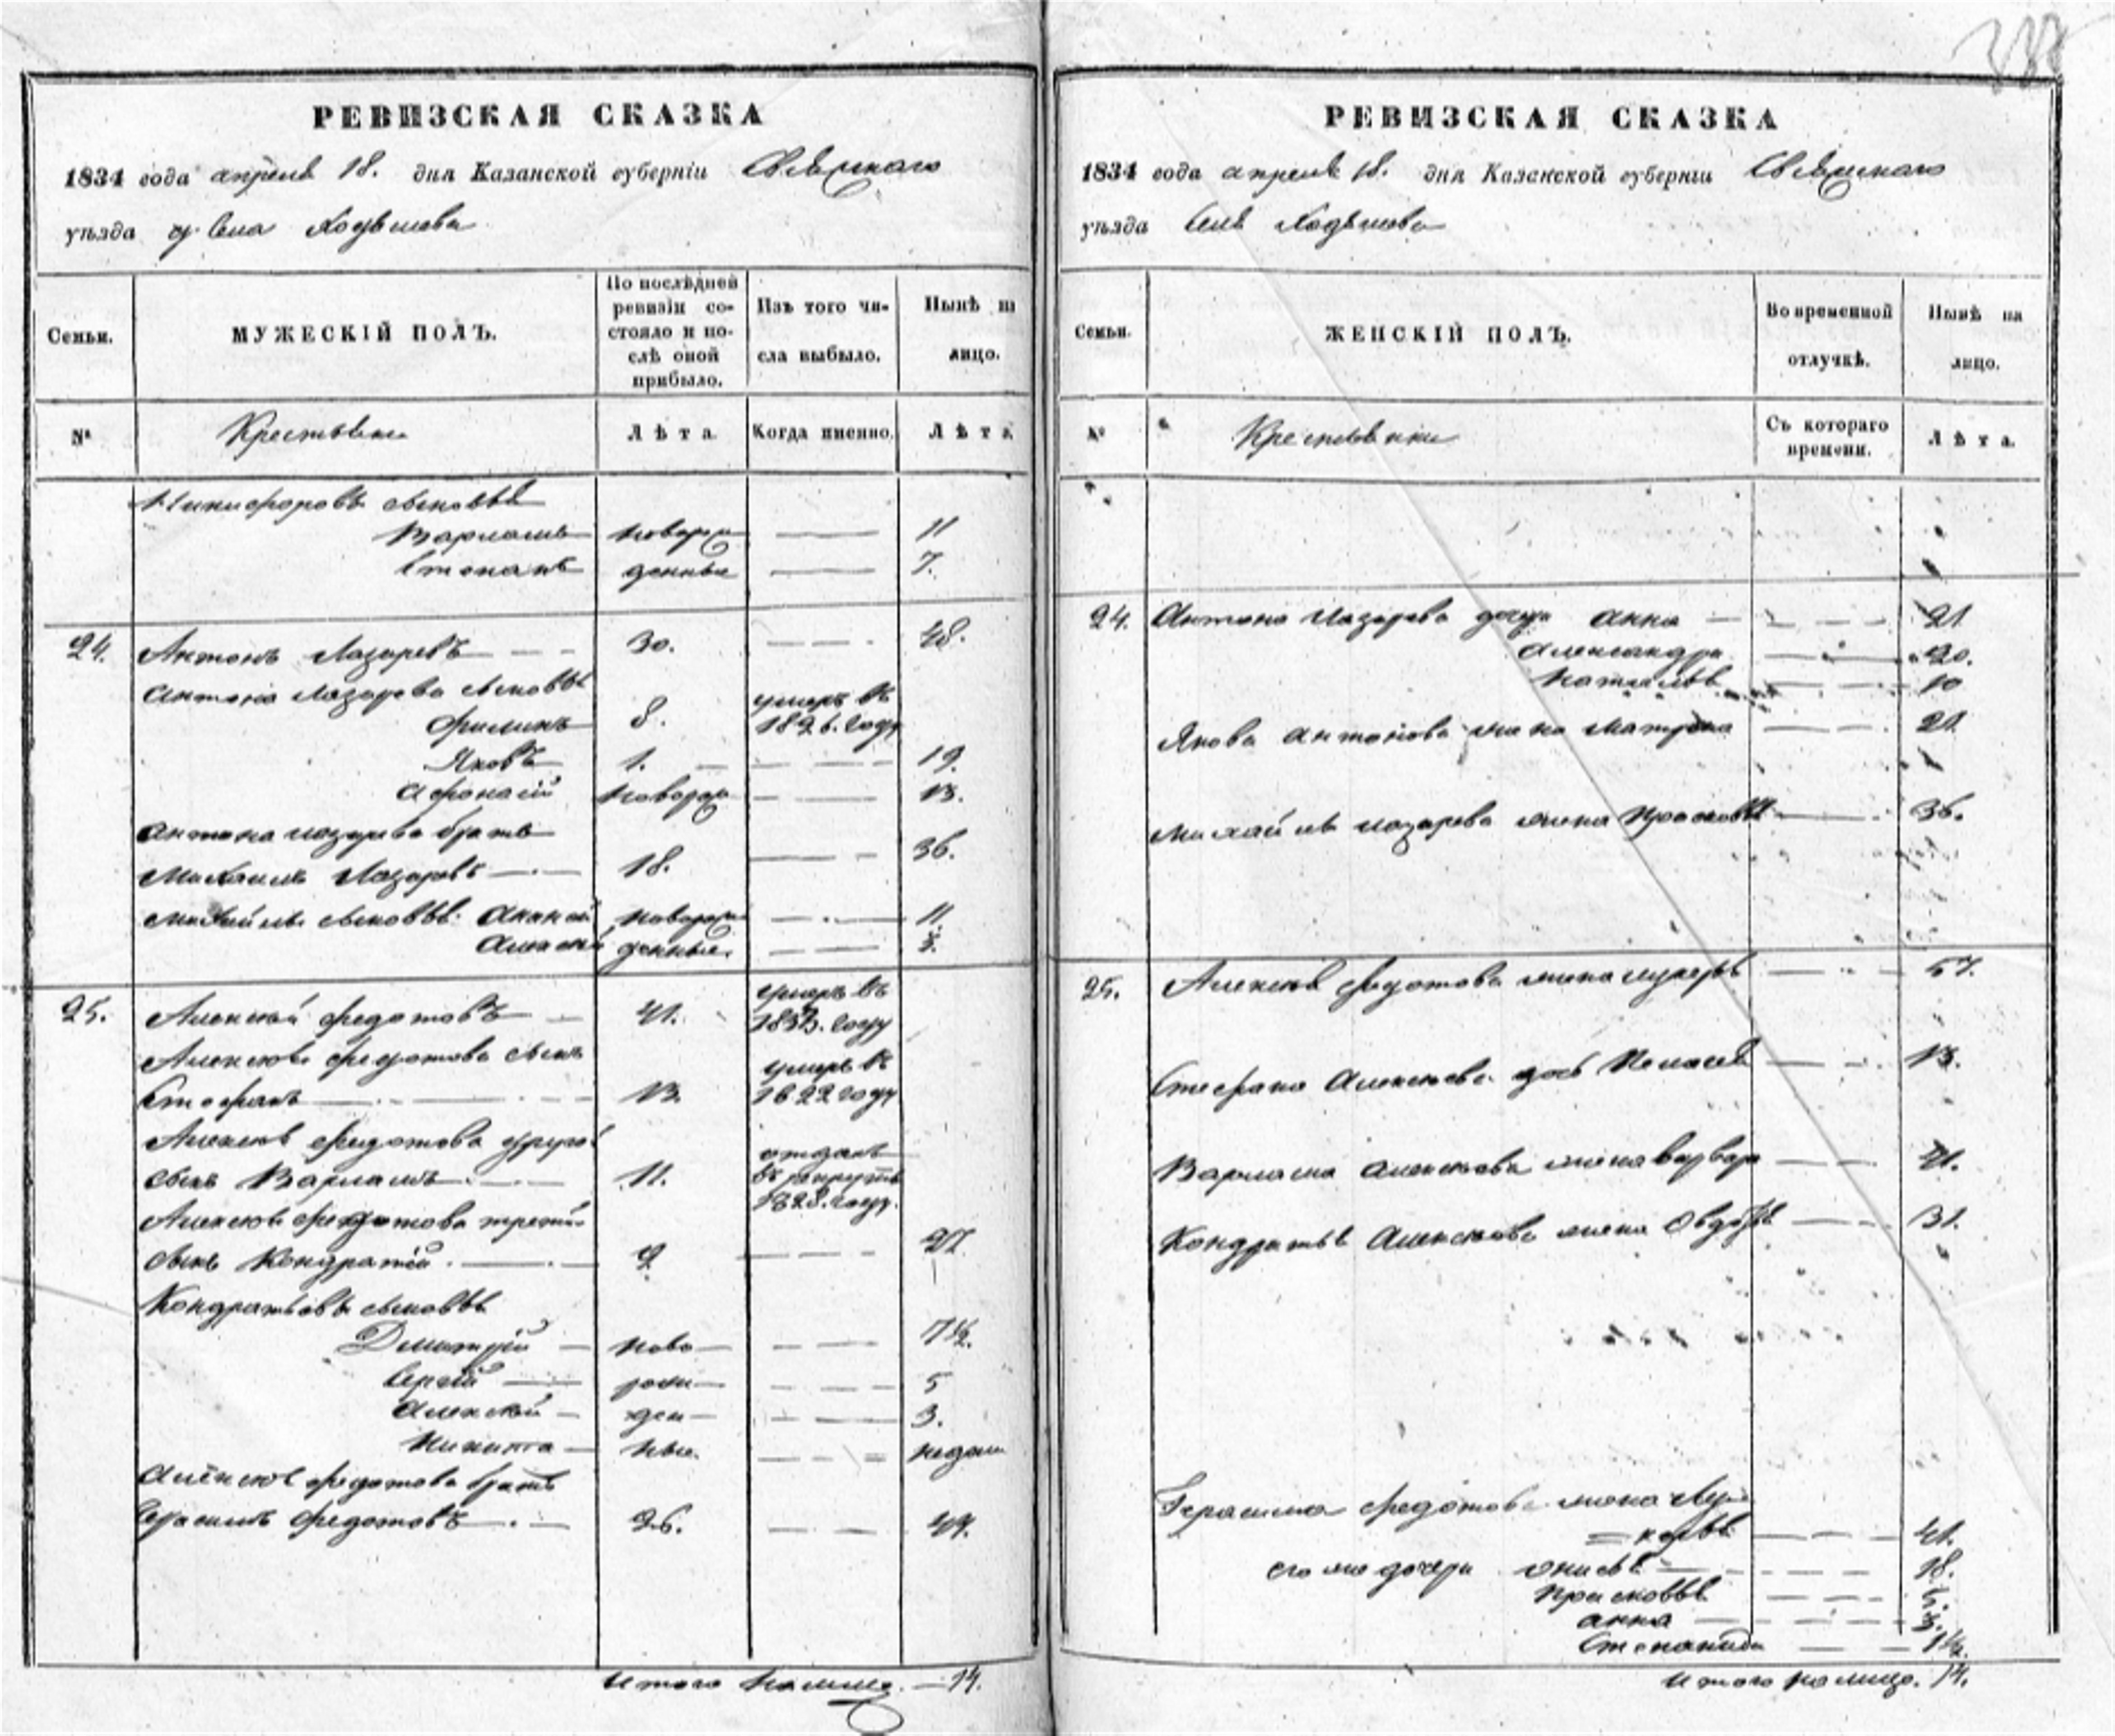 РЕВИЗСКАЯ СКАЗКА
1834 года апреля 18. дня Казанской губерніи Свіяжскаго
уѣзда Села Ходяшева
Семьи.
МУЖЕСКІЙ ПОЛЪ.
По послѣдней ревизіи со-
стояло и по-
слѣ оной
прибыло.
Изъ того чи-
сла выбыло.
Нынѣ на
лицо.
№
Крестьяне
Лѣта
Когда именно.
Лѣта
Никифоровы сыновья
Варламъ новорож 11
Степанъ денные 7.
24. Антонъ Лазаревъ 30. 48.
Антона Лазарева сыновья
Филипъ 8. умеръ въ
1826. году
Яковъ 1. 19.
Афонасій новорож 13.
Антона Лазарева братъ
Михаилъ Лазаревъ 18. 36.
Михайлы сыновья Ананій новорож 11.
Алексей денные. 3.
25. Алексей Федотовъ 41. умеръ въ
году
Алексея Федотова сынъ умеръ въ
Стефанъ 13. 1822 году
Алексея Федотова другой отданъ
сынъ Варламъ 11. въ рекруты
1828. году.
Алексея Федотова третій
сынъ Кондратій 9. 27.
Кондратьевы сыновья
Дмитрій ново 7½.
Сергей рож 5
Алексей ден 3.
Никита ные. недели
Алексея Федотова братъ
Герасимъ Федотовъ 26. 44.
Итого налицо. 14.
РЕВИЗСКАЯ СКАЗКА
1834 года апреля 18. дня Казанской губерніи Свіяжскаго
уѣзда Села Ходяшева
Семьи.
ЖЕНСКІЙ ПОЛЪ.
Во временной
отлучкѣ.
Нынѣ на
лицо.
№
Крестьянки
Съ котораго
времени.
Лѣта.
24. Антона Лазарева дочери Анна 21
Александра 20.
Наталья 10
Якова Антонова жена Матрена 21.
Михайлы Лазарева жена Прасковья 36.
25. Алексея Федотова жена 57.
Стефана Алексеева дочь Пелагея 13.
Варлама Алексеева жена Варвара 41.
Кондратья Алексеева жена Овдотья 31.
Герасима Федотова жена Лу
=керья 41.
его же дочери Онисья 18.
Прасковья 5.
Анна 3.
Степанида 1½.
Итого налицо. 14.